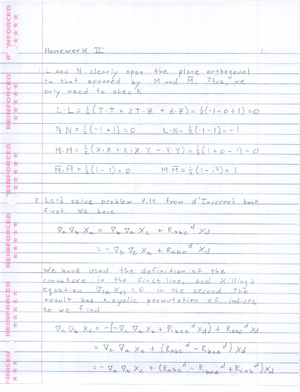 Homework II
1
L and N clearly span the plane orthogonal
to that spanned by M and M̄. Thus, we
only need to check
L·L = ½(T·T + 2T·Z + Z·Z) = ½(-1+0+1) = 0
N·N = ½(-1+1) = 0 L·N = ½(-1-1) = -1
M·M = ½(X·X + 2iX·Y - Y·Y) = ½(1+0-1) = 0
M̄·M̄ = ½(1-1) = 0 M·M̄ = ½(1-i²) = 1
2. Let's solve problem 7.14 from d'Inverno's book
first. We have
∇ₐ ∇_b X_c = ∇_b ∇ₐ X_c + R_{abc}^d X_d
= -∇_b ∇_c Xₐ + R_{abc}^d X_d
We have used the definition of the
curvature in the first line, and Killing's
equation ∇_{(a} X_{c)} = 0 in the second. The
result has a cyclic permutation of indices,
so we find
∇ₐ ∇_b X_c = -(-∇_c ∇ₐ X_b + R_{bca}^d X_d) + R_{abc}^d X_d
= ∇_c ∇ₐ X_b + (R_{abc}^d - R_{bca}^d) X_d
= -∇ₐ ∇_b X_c + (R_{abc}^d - R_{bca}^d + R_{cab}^d) X_d
REINFORCED
REINFORCED
REINFORCED
REINFORCED